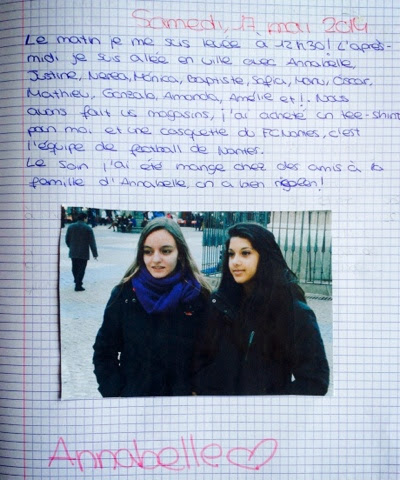 Samedi, 17 mai 2014
Le matin je me suis levée à 12h30! L'après-
midi je suis allée en ville avec Annabelle,
Justine, Nerea, Mónica, Baptiste, Sofia, Manu, Oscar,
Mathieu, Gonzalo, Amanda, Amélie et!. Nous
avons fait les magasins, j'ai acheté un tee-shirt
pour moi et une casquette du FC Nantes, c'est
l'équipe de football de Nantes.
Le soir j'ai été mangé chez des amis à la
famille d'Annabelle, on a bien
Annabelle